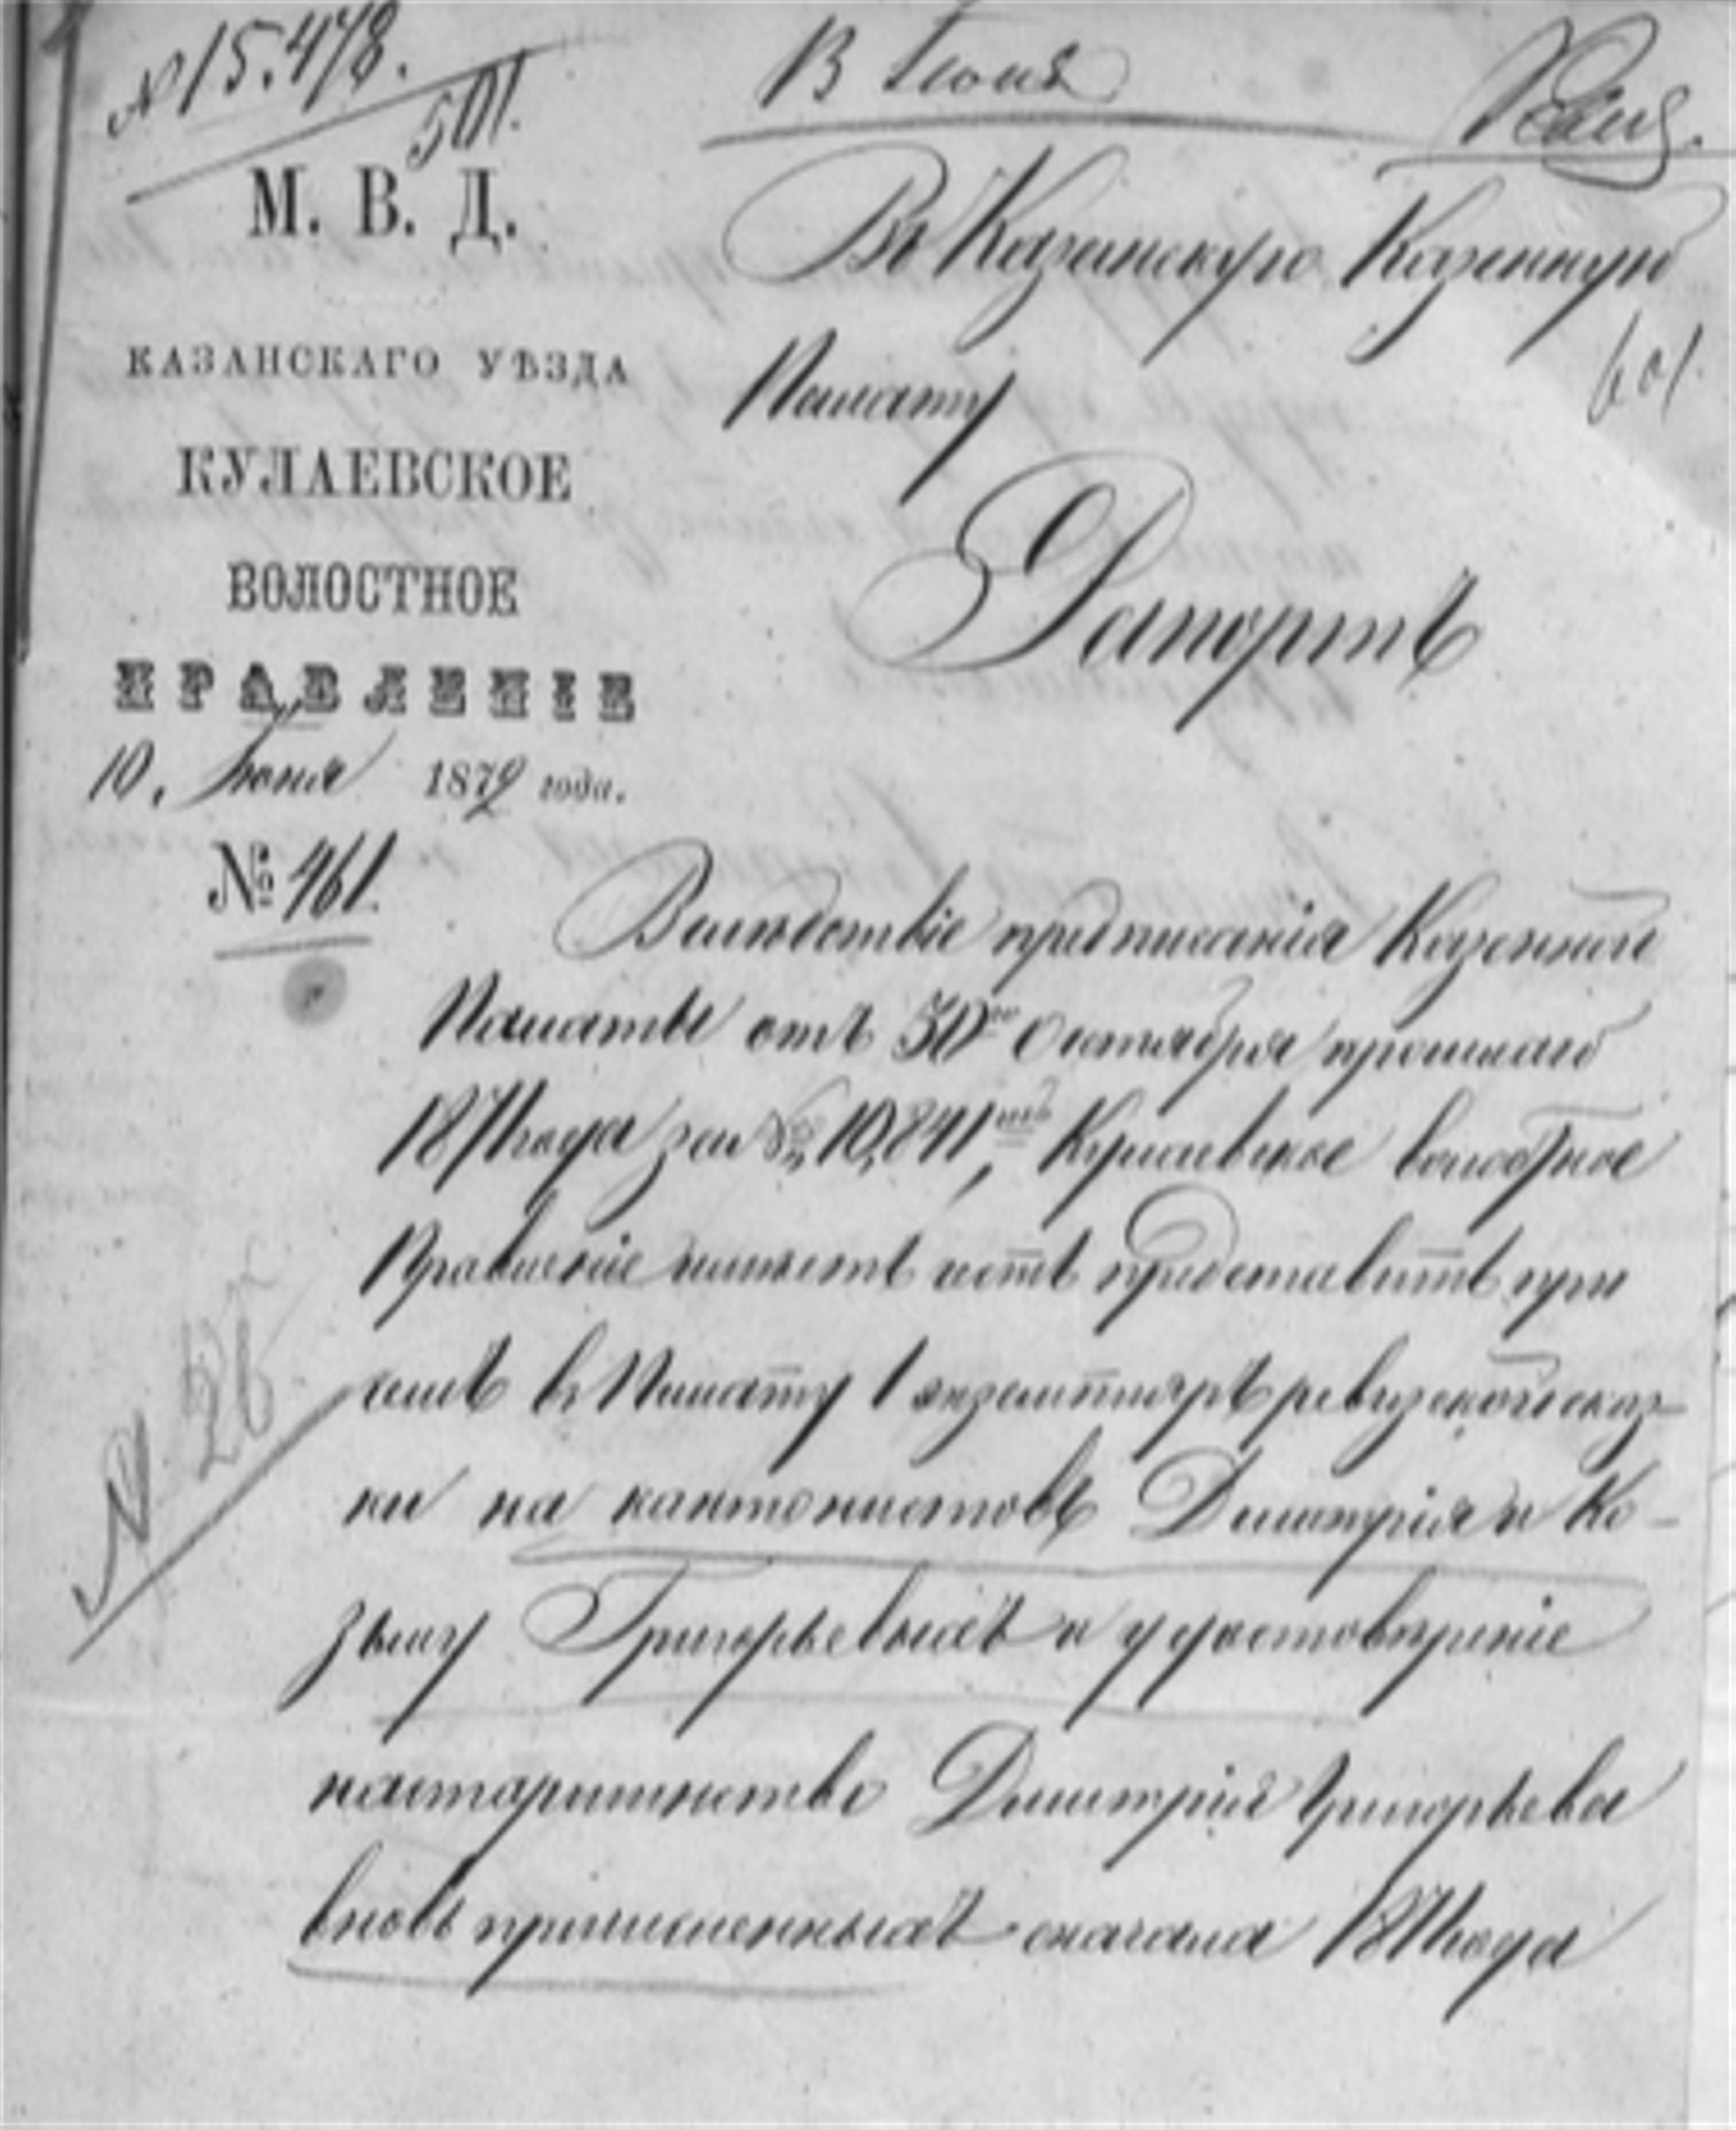 № 15.478.
501.
13 Іюня
М. В. Д.
КАЗАНСКАГО УѢЗДА
КУЛАЕВСКОЕ
ВОЛОСТНОЕ
ПРАВЛЕНІЕ
10. Іюня 1872 года.
№ 461.
Въ Казанскую Казенную
601.
Палату
Рапортъ
Вслѣдствіе предписанія Казенной
Палаты отъ 30го Октября прошлаго
1871 года за № 10,841, Кулаевское волостное
Правленіе имѣетъ честь представить при
семъ въ Палату 1 экземпляръ ревизской сказ-
ки на кантонистовъ Димитрія и Ко-
зьму Григорьевыхъ и удостовѣреніе
настаршинство Димитрія Григорьева
вновь причисленныхъ сначала 1871 года
№ 26